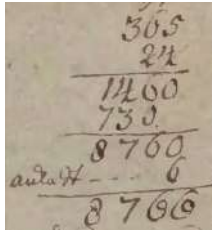 365
24
1460
730.
8760
6
8766